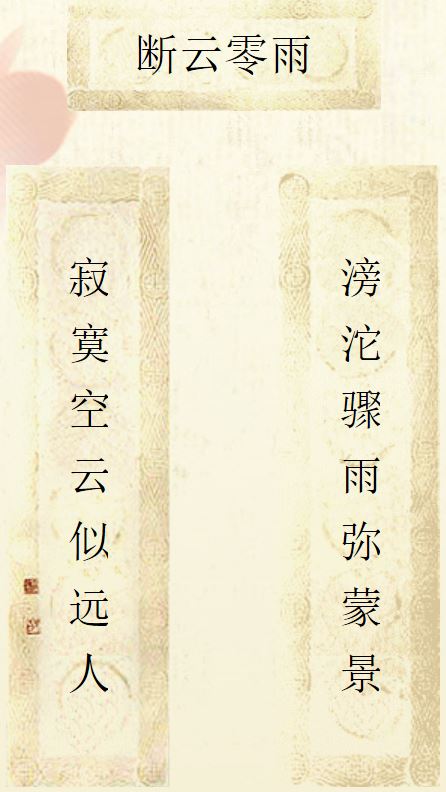 断云零雨
滂沱骤雨弥蒙景
寂寞空云似远人